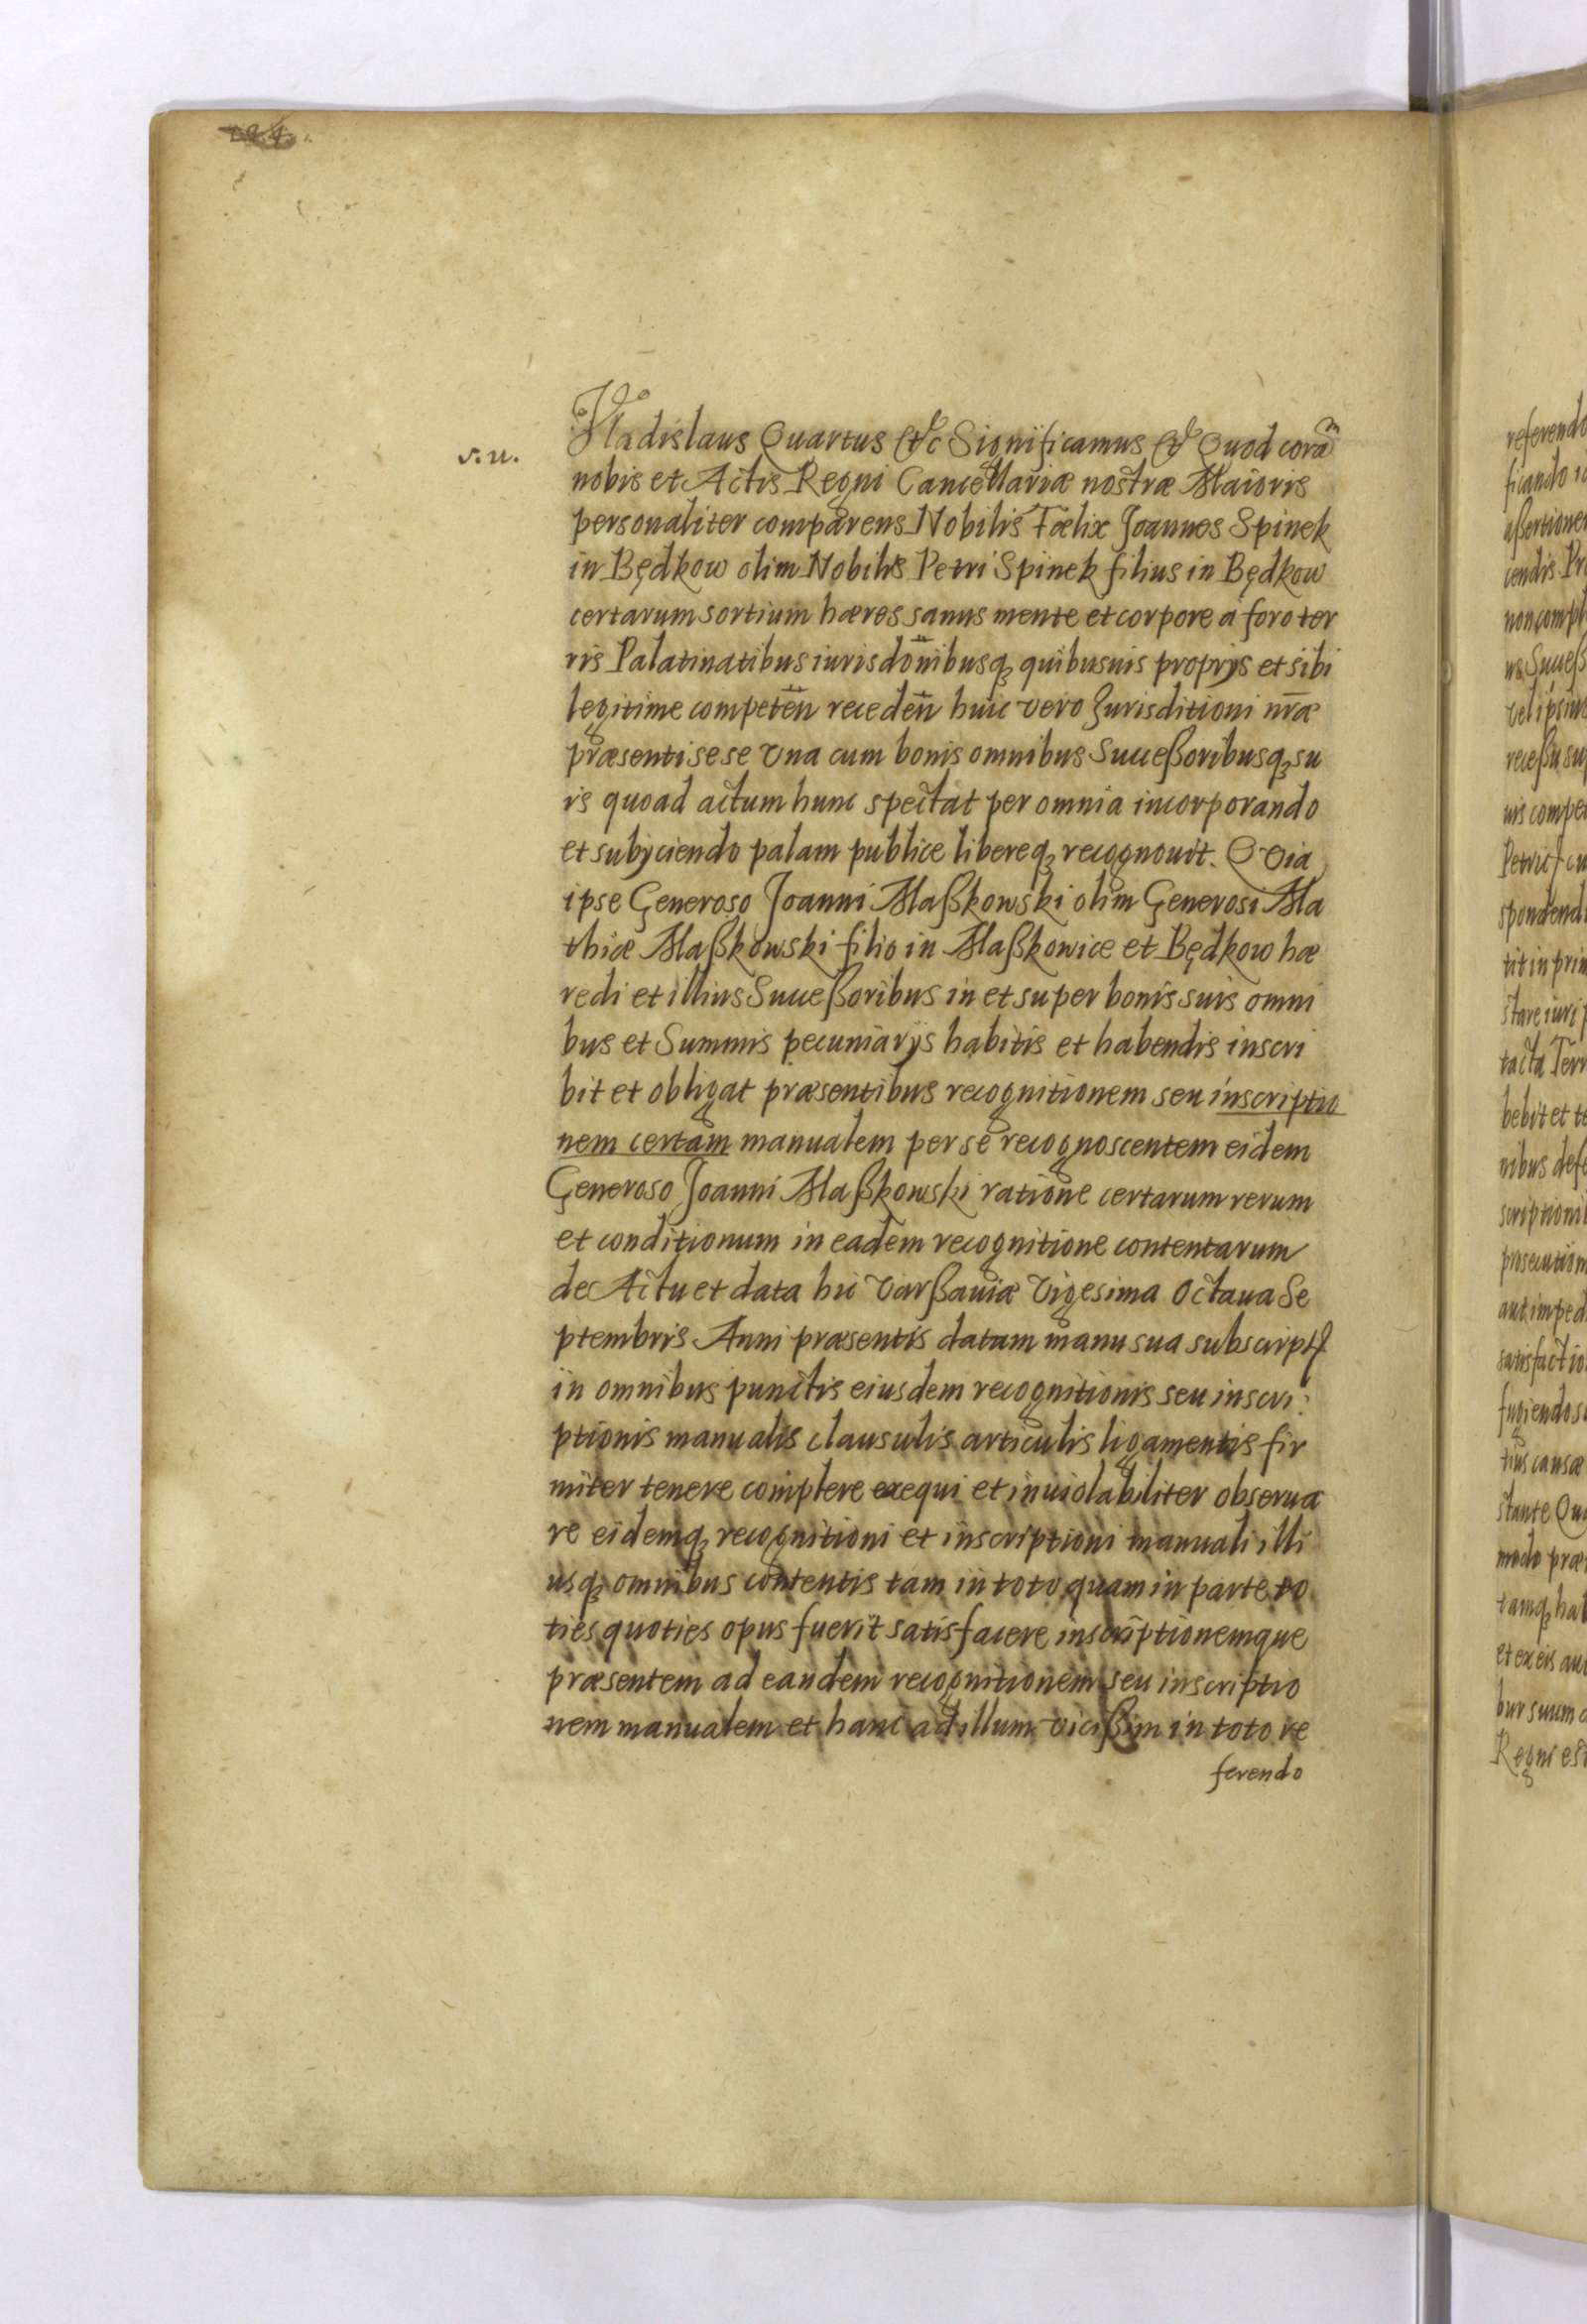 s. u.
Vladislaus Quartus &c Significamus & Quod corã
nobis et Actis Regni Cancellariæ nostræ Maioris
personaliter comparens Nobilis Fælix Joannes Spinek
in Będkow olim Nobilis Petri Spinek filius in Będkow
certarum sortium hæres sanus mente et corpore á foro ter
ris Palatinatibus iurisdõnibusq3 quibusuis proprijs et sibi
legitime competeñ recedeñ huic vero Jurisditioni nr̃æ
præsenti sese vna cum bonis omnibus Succeßoribusq3 su
is quoad actum hunc spectat per omnia incorporando
et subijciendo palam publice libereq3 recognouit. Quia
ipse Generoso Joanni Maßkowski olim Generosi Ma
thiæ Maßkowski filio in Maßkowice et Będkow hæ
redi et illius Succeßoribus in et super bonis suis omni
bus et Summis pecuniarijs habitis et habendis inscri
bit et obligat præsentibus recognitionem seu inscriptio
nem certam manualem per se recognoscentem eidem
Generoso Joanni Maßkowski ratione certarum rerum
et conditionum in eadem recognitione contentarum
de Actu et data hic Varßauiæ Vigesima Octaua Se
ptembris Anni præsentis datam manu sua subscript
in omnibus punctis eiusdem recognitionis seu inscri:
ptionis manualis clausulis articulis ligamentis fir
miter tenere complere exequi et inuiolabiliter obserua
re eidemq3 recognitioni et inscriptioni manuali illi
usq3 omnibus contentis tam in toto quam in parte to
ties quoties opus fuerit satisfacere inscriptionemque
præsentem ad eandem recognitionem seu inscriptio
nem manualem et hanc ad illum vicißim in toto re
ferendo